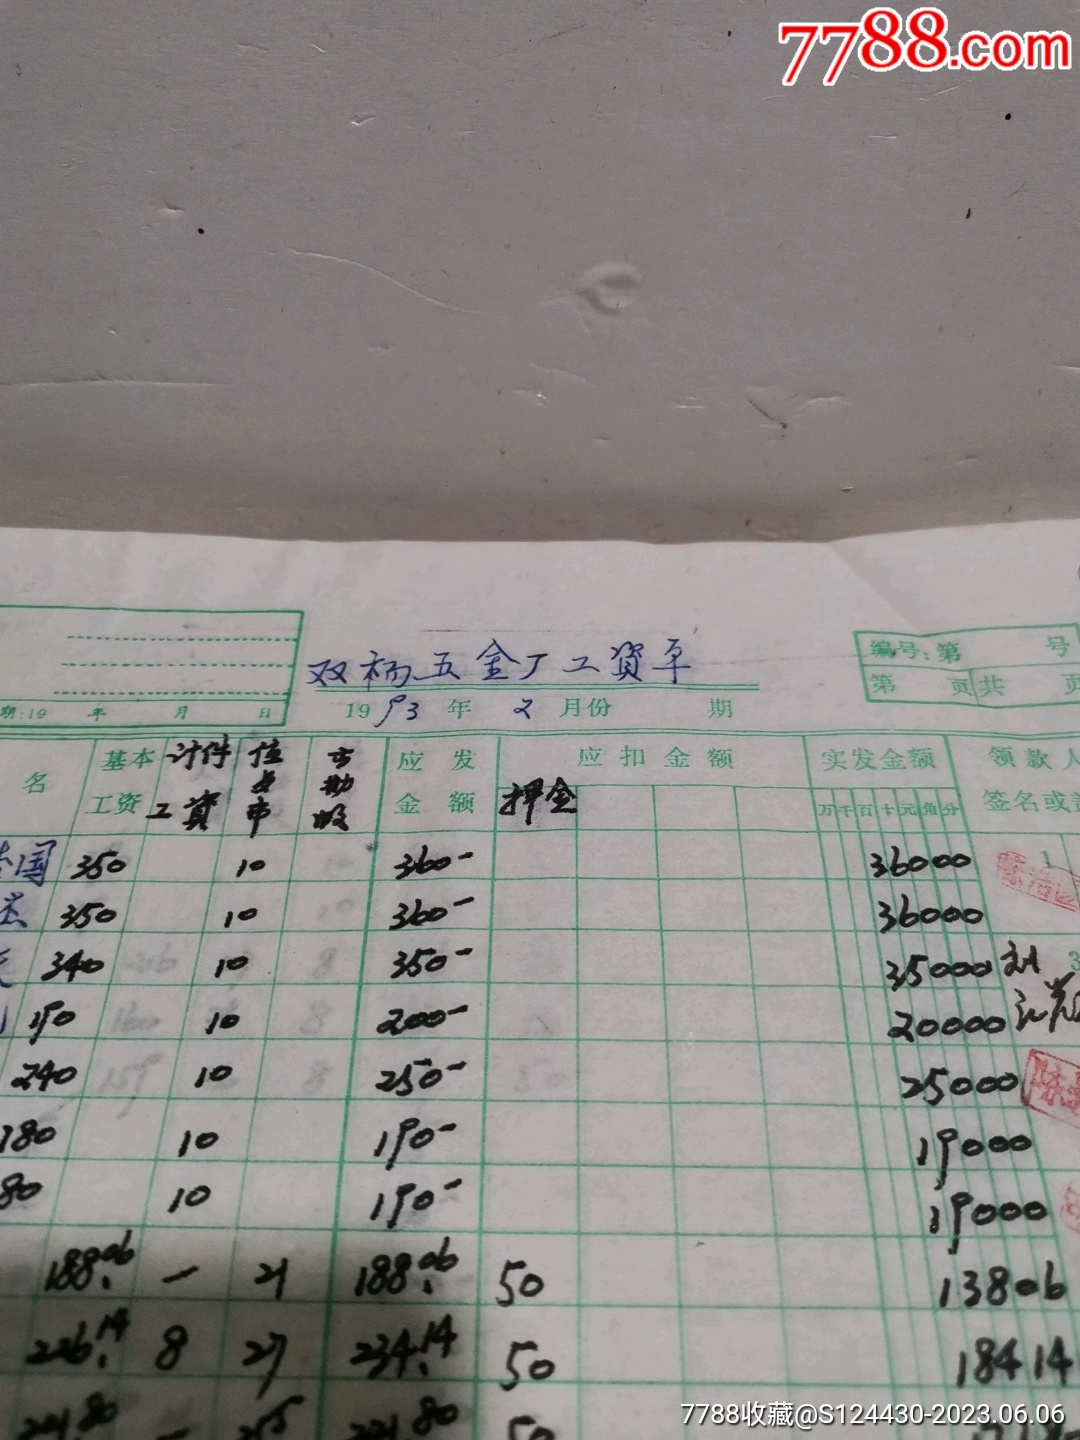 7788.com
编号:第 号
双柄五金厂工資单
第 页共 页
期:19 年 月 日
1993年 2月份 期
名 基本工资 计件工資 应发金额 应扣金额 押金 实发金额 万千百十元角分 领款人签名或
国 350 10 360- 36000
350 10 360- 36000
340 10 350- 35000 刘
190 10 200- 20000
240 10 250- 25000
180 10 190- 19000
80 10 190- 19000
188.06 - 21 188.06 50 13806
226.14 8 27 234.14 50 18414
50
7788收藏@S124430-2023.06.06